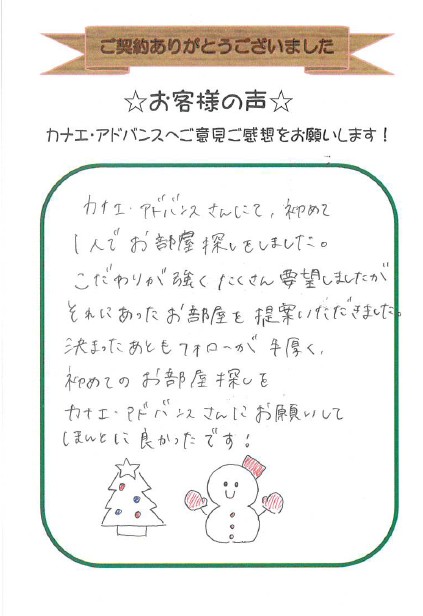 ご契約ありがとうございました
☆お客様の声☆
カナエ・アドバンスへご意見ご感想をお願いします！
カナエ・アドバンスさんにて、初めて
1人でお部屋探しをしました。
こだわりが強くたくさん要望しましたが
それにあったお部屋を提案いただきました。
決まったあともフォローが手厚く、
初めてのお部屋探しを
カナエ・アドバンスさんにお願いして
ほんとに良かったです！